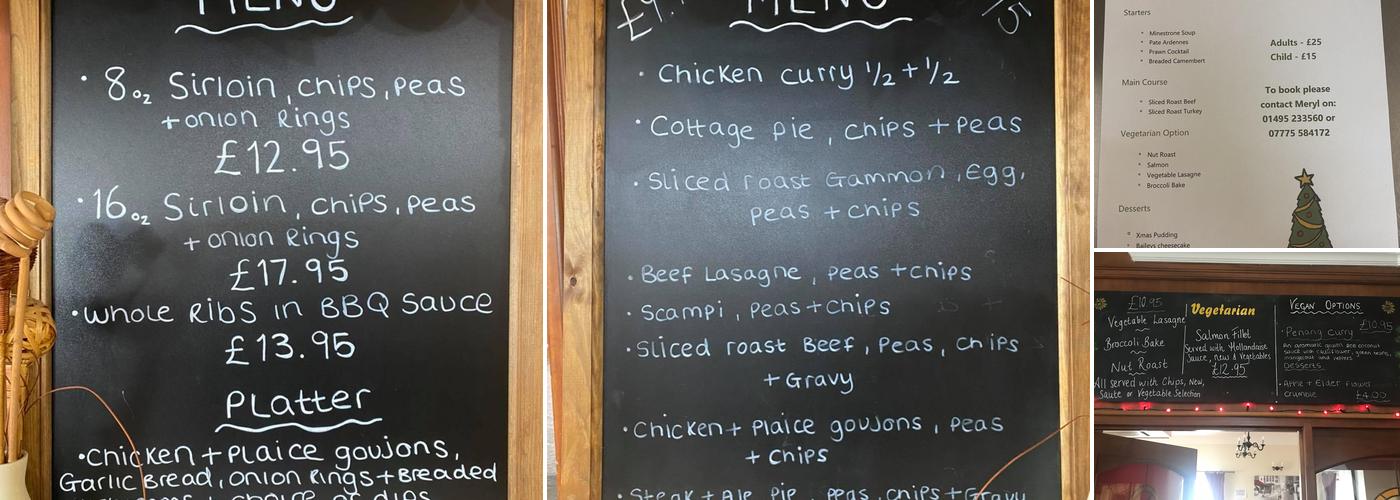 MENU
• 8oz Sirloin, chips, peas
+ onion Rings
£12.95
• 16oz Sirloin, chips, peas
+ onion Rings
£17.95
• whole Ribs in BBQ Sauce
£13.95
Platter
• Chicken + Plaice goujons,
Garlic Bread, onion Rings + Breaded
+ choice of dips
MENU
• Chicken curry 1/2 + 1/2
• Cottage pie, chips + Peas
• Sliced roast Gammon, Egg,
peas + chips
• Beef Lasagne, peas + chips
• Scampi, peas + chips
• Sliced roast Beef, Peas, chips
+ Gravy
• Chicken + Plaice goujons, peas
+ chips
• Steak + Ale Pie, peas, chips + Gravy
Starters
• Minestrone Soup
• Pate Ardennes
• Prawn Cocktail
• Breaded Camembert
Main Course
• Sliced Roast Beef
• Sliced Roast Turkey
Vegetarian Option
• Nut Roast
• Salmon
• Vegetable Lasagne
• Broccoli Bake
Desserts
• Xmas Pudding
• Baileys cheesecake
Adults - £25
Child - £15
To book please
contact Meryl on:
01495 233560 or
07775 584172
£10.95
Vegetable Lasagne
Broccoli Bake
Nut Roast
All served with Chips, New,
Saute or Vegetable Selection
Vegetarian
Salmon Fillet
Served with Hollandaise
Sauce, new & Vegetables
£12.95
Vegan Options
• Penang Curry £10.95
An aromatic coconut
sauce with cauliflower, green beans,
Desserts
• Apple + Elder flower
crumble £4.00